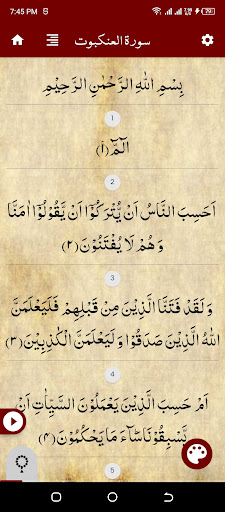 7:45 PM
سورة العنكبوت
بِسْمِ اللهِ الرَّحْمٰنِ الرَّحِيْمِ
1
الٓمّٓ (١)
2
اَحَسِبَ النَّاسُ اَنْ يُّتْرَكُوْٓا اَنْ يَّقُوْلُوْٓا اٰمَنَّا
وَ هُمْ لَا يُفْتَنُوْنَ (٢)
3
وَ لَقَدْ فَتَنَّا الَّذِيْنَ مِنْ قَبْلِهِمْ فَلَيَعْلَمَنَّ
اللّٰهُ الَّذِيْنَ صَدَقُوْا وَ لَيَعْلَمَنَّ الْكٰذِبِيْنَ (٣)
4
اَمْ حَسِبَ الَّذِيْنَ يَعْمَلُوْنَ السَّيِّاٰتِ اَنْ
يَّسْبِقُوْنَا سَآءَ مَا يَحْكُمُوْنَ (۴)
5